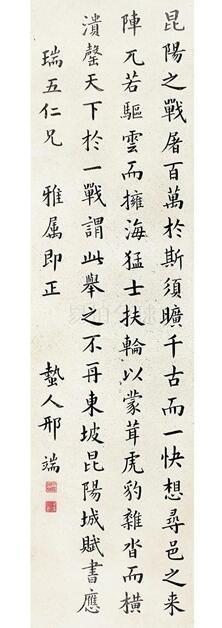 昆陽之戰屠百萬於斯須曠千古而一快想尋邑之来
陣兀若驅雲而擁海猛士扶輪以蒙茸虎豹雜沓而横
潰罄天下於一戰謂此舉之不再東坡昆陽城賦書應
瑞五仁兄 雅属即正 蟄人邢端